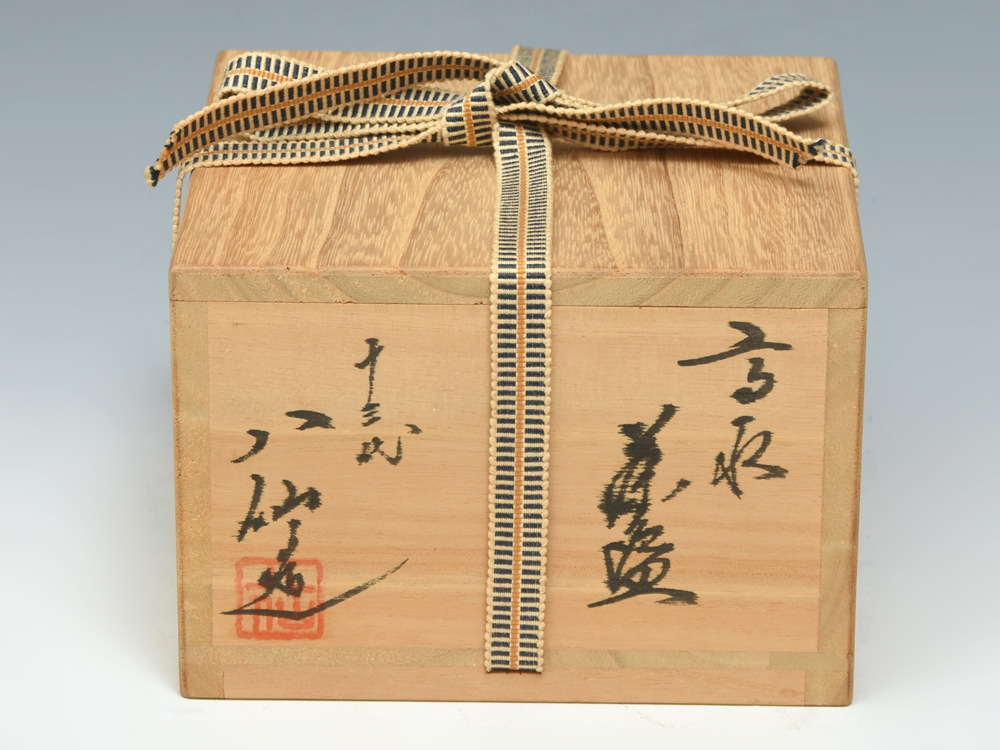 高取
茶盌
十三代
八仙造